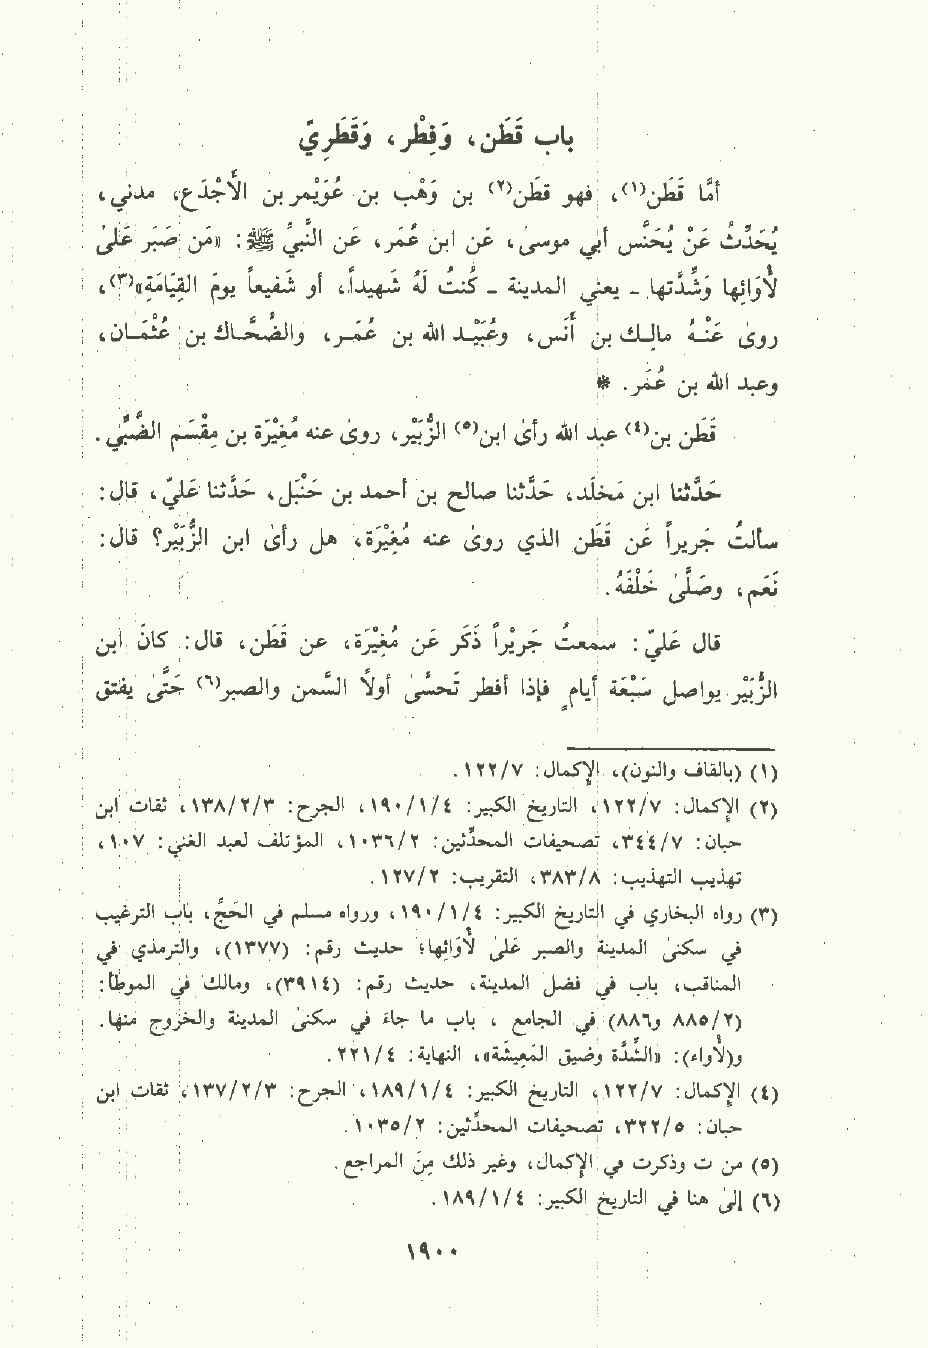 باب قَطَن، وَفِطْر، وَقَطَرِيّ
أمَّا قَطَن(١)، فهو قطَن(٢) بن وَهْب بن عُوَيْمر بن الْأجْدَع، مدني،
يُحَدِّثُ عَنْ يُحَنَّس أبي موسىٰ، عَن ابن عُمَر، عَن النَّبيِّ ﷺ: «مَن صَبَر عَلىٰ
لَأوَائِها وَشِدَّتها ـ يعني المدينة ـ كُنتُ لَهُ شَهيداً، أو شَفيعاً يومَ القِيَامَةِ»(٣)،
روىٰ عَنْـهُ مالِـك بن أنَس، وعُبَيْـد الله بن عُمَـر، والضَّحَّـاك بن عُثْمَـان،
وعبد الله بن عُمَر. *
قَطَن بن(٤) عبد الله رأىٰ ابن(٥) الزُّبَيْر، روىٰ عنه مُغِيْرَة بن مِقْسَم الضَّبِّي.
حَدَّثنا ابن مَخلَد، حَدَّثنا صالح بن أحمد بن حَنْبَل، حَدَّثنا عَليّ، قال:
سألتُ جَريراً عَن قَطَن الذي روىٰ عنه مُغِيْرَة، هل رأىٰ ابن الزُّبَيْر؟ قال:
نَعَم، وصَلَّىٰ خَلْفَهُ.
قال عَليّ: سمعتُ جَريْراً ذَكَر عَن مُغِيْرَة، عن قَطَن، قال: كانَ ابن
الزُّبَيْر يواصل سَبْعَة أيامٍ فإذا أفطر تَحسَّىٰ أولاً السَّمن والصبر(٦) حَتَّىٰ يفتق
(١) (بالقاف والنون)، الإكمال: ١٢٢/٧.
(٢) الإكمال: ١٢٢/٧، التاريخ الكبير: ١٩٠/١/٤، الجرح: ١٣٨/٢/٣، ثقات ابن
حبان: ٣٤٤/٧، تصحيفات المحدِّثين: ١٠٣٦/٢، المؤتلف لعبد الغني: ١٠٧،
تهذيب التهذيب: ٣٨٣/٨، التقريب: ١٢٧/٢.
(٣) رواه البخاري في التاريخ الكبير: ١٩٠/١/٤، ورواه مسلم في الحَجِّ، باب الترغيب
في سكنىٰ المدينة والصبر عَلىٰ لَأوَائِهاء حديث رقم: (١٣٧٧)، والترمذي في
المناقب، باب في فضل المدينة، حديث رقم: (٣٩١٤)، ومالك في الموطأ:
(٨٨٥/٢ و٨٨٦) في الجامع ، باب ما جاءَ في سكنىٰ المدينة والخروج منها.
و(لأواء): «الشِّدَّة وضيق المَعِيشَة»، النهاية: ٢٢١/٤.
(٤) الإكمال: ١٢٢/٧، التاريخ الكبير: ١٨٩/١/٤، الجرح: ١٣٧/٢/٣، ثقات ابن
حبان: ٣٢٢/٥، تصحيفات المحدِّثين: ١٠٣٥/٢.
(٥) من ت وذكرت في الإكمال، وغير ذلك مِنَ المراجع.
(٦) إلىٰ هنا في التاريخ الكبير: ١٨٩/١/٤.
١٩٠٠